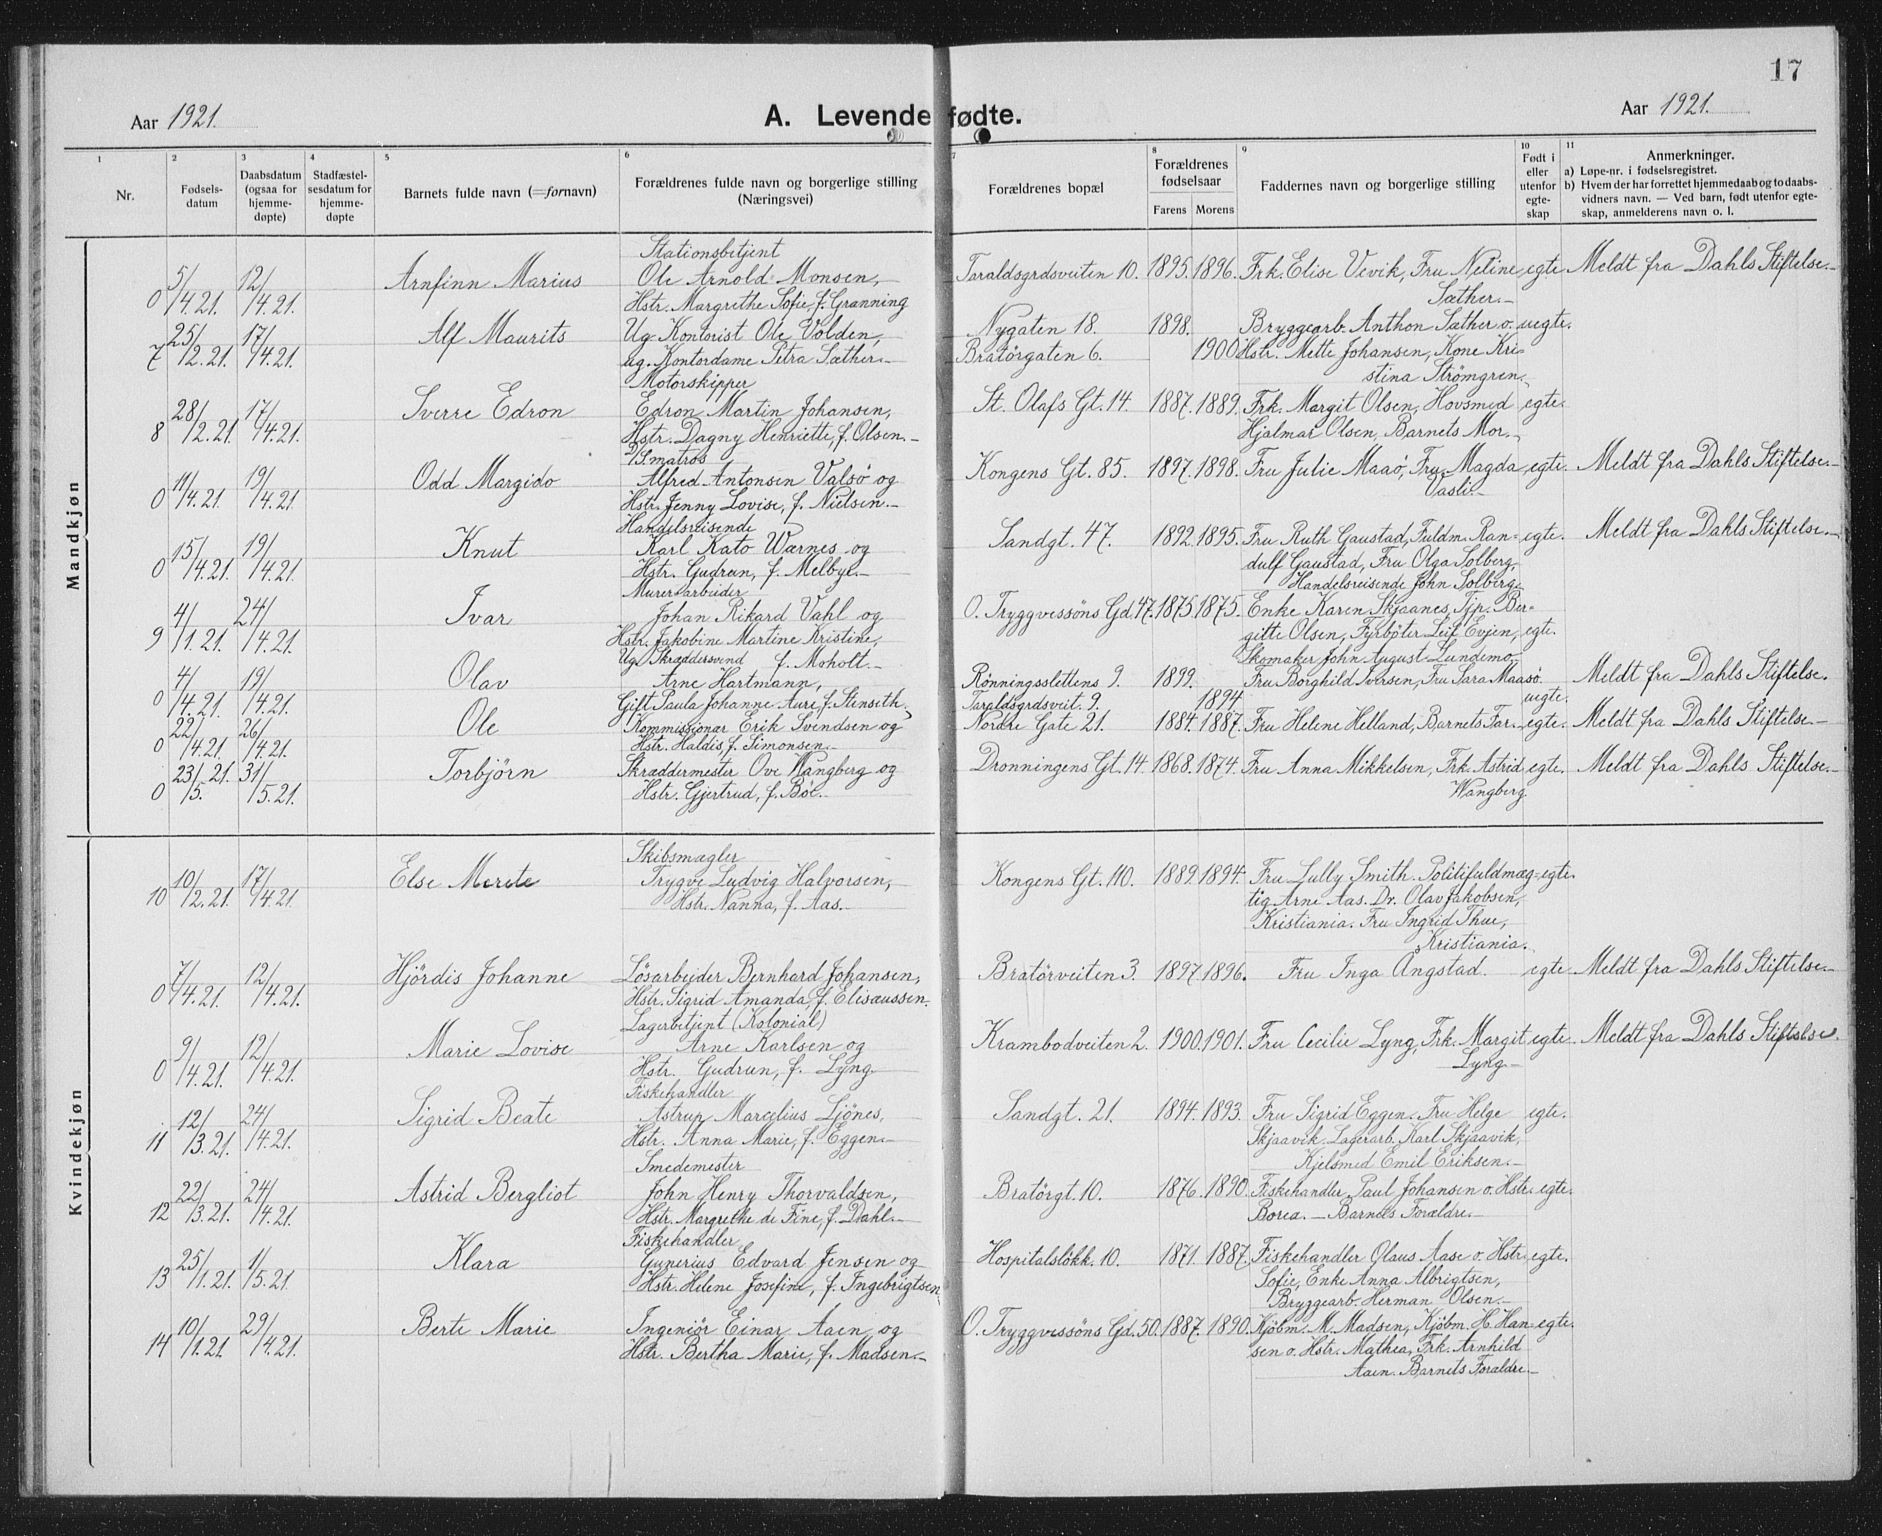 17
Aar 1921.
A. Levende fødte.
Aar 1921.
1 2 3 4 5 6 7 8 9 10 11
Nr.
Fødsels-
datum
Daabsdatum
(ogsaa for
hjemme-
døpte)
Stadfæstel-
sesdatum for
hjemme-
døpte
Barnets fulde navn (=fornavn)
Forældrenes fulde navn og borgerlige stilling
(Næringsvei)
Forældrenes bopæl
Forældrenes
fødselsaar
Farens Morens
Faddernes navn og borgerlige stilling
Født i
eller
utenfor
egte-
skap
Anmerkninger.
a) Løpe-nr. i fødselsregistret.
b) Hvem der har forrettet hjemmedaab og to daabs-
vidners navn. — Ved barn, født utenfor egte-
skap, anmelderens navn o. l.
Mandkjøn
Stationsbetjent
0 5/4.21. 12/4.21. Arnfinn Marius Ole Arnold Monsen, Taraldsgrdsveiten 10. 1895. 1896. Frk. Elise Vevik, Fru Neline egte Meldt fra Dahls Stiftelse.-
Hstr. Margrethe Sofie, f. Granning Sæther.-
7 25/2.21. 17/4.21. Alf Maurits Ug. Kontorist Ole Volden, Nygaten 18. 1898. Bryggearb. Anthon Sæther o. uegte.
ug. Kontordame Petra Sæther.- Bratörgaten 6. 1900 Hstr. Mette Johansen, Kone Kri-
Motorskipper stina Strömgren.
8 28/2.21. 17/4.21. Sverre Edron Edron Martin Johansen, St. Olafs Gt. 14. 1887. 1889. Frk. Margit Olsen, Hovsmed egte.
Hstr. Dagny Henriette, f. Olsen.- Hjalmar Olsen, Barnets Mor.-
D/S matros
0 11/4.21. 19/4.21. Odd Margido Alfred Antonsen Valsø og Kongens Gt. 85. 1897. 1898. Fru Julie Maaö, Fru Magda egte. Meldt fra Dahls Stiftelse.-
Hstr. Jenny Lovise, f. Nielsen.- Vasli.-
Handelsreisende
0 15/4.21. 19/4.21. Knut Karl Kato Wærnes og Sandgt. 47. 1892. 1895. Fru Ruth Gaustad, Fuldm. Ran- egte. Meldt fra Dahls Stiftelse.-
Hstr. Gudrun, f. Melbye.- dulf Gaustad, Fru Olga Solberg,
Murerarbeider Handelsreisende John Solberg.
9 4/1.21. 24/4.21. Ivar Johan Rikard Vahl og O. Tryggvessöns Gd. 47. 1875. 1875. Enke Karen Skjaanes, Tjp. Bir-
Hstr. Jakobine Martine Kristine, gitte Olsen, Fyrböter Leif Evjen, egte.
Ug. Skræddersvend f. Moholt.- Skomaker John August Lundemo.
0 4/4.21. 19/4.21. Olav Arne Hartmann, Rönningsslettens 9. 1899. Fru Borghild Iversen, Fru Sara Maasö. Meldt fra Dahls Stiftelse.
Gift Paula Johanne Aure, f. Stenseth. Taraldsgrdsveit. 9. 1894 uegte.
0 22/4.21. 26/4.21. Ole Kommissionær Erik Svendsen og Nordre Gate 21. 1884. 1887. Fru Helene Helland, Barnets Far.- egte. Meldt fra Dahls Stiftelse.-
Hstr. Haldis, f. Simonsen.-
0 23/5.21. 31/5.21. Torbjörn Skræddermester Ove Wangberg og Dronningens Gt. 14. 1868. 1874. Fru Anna Mikkelsen, Frk. Astrid egte. Meldt fra Dahls Stiftelse.-
Hstr. Gjertrud, f. Böe.- Wangberg.
Kvindekjøn
Skibsmægler
10 10/2.21. 17/4.21. Else Merete Trygve Ludvig Halvorsen, Kongens Gt. 110. 1889. 1894. Fru Lully Smith. Politifuldmæg- egte.
Hstr. Nanna, f. Aas.- tig Arne Aas. Dr. Olav Jakobsen,
Kristiania. Fru Ingrid Thue,
Kristiania.
0 7/4.21. 12/4.21. Hjördis Johanne Løsarbeider Bernhard Johansen, Bratörveiten 3. 1897. 1896. Fru Inga Angstad. egte Meldt fra Dahls Stiftelse.-
Hstr. Sigrid Amanda, f. Elisæussen.
Lagerbetjent (Kolonial)
0 9/4.21. 12/4.21. Marie Lovise Arne Karlsen og Krambodveiten 2. 1900. 1901. Fru Cecilie Lyng, Frk. Margit egte. Meldt fra Dahls Stiftelse.
Hstr. Gudrun, f. Lyng. Lyng.-
Fiskehandler
11 12/3.21. 24/4.21. Sigrid Beate Astrup Marcelius Ljönes, Sandgt. 21. 1894. 1893. Fru Sigrid Eggen. Fru Helge egte.
Hstr. Anna Marie, f. Eggen.- Skjaavik. Lagerarb. Karl Skjaavik,
Smedemester Kjelsmed Emil Eriksen.-
12 22/3.21. 24/4.21. Astrid Bergliot John Henry Thorvaldsen, Bratörgt. 10. 1876. 1890. Fiskehandler Paul Johansen o. Hstr. egte.
Hstr. Margrethe de Fine, f. Dahl.- Borea.- Barnets Forældre.-
Fiskehandler
13 25/1.21. 1/5.21 Klara Gunerius Edvard Jensen og Hospitalslökk. 10. 1871. 1887. Fiskehandler Olaus Aase o. Hstr. egte.
Hstr. Helene Josefine, f. Ingebrigtsen. Sofie, Enke Anna Albrigtsen,
Bryggearb. Herman Olsen.-
14 10/1.21. 29/4.21. Berte Marie Ingeniör Einar Aaen og O. Tryggvessöns Gd. 50. 1887. 1890. Kjöbm. M. Madsen, Kjöbm. H. Han- egte.
Hstr. Bertha Marie, f. Madsen.- sen o. Hstr. Mathea, Frk. Arnhild
Aaen. Barnets Forældre.-